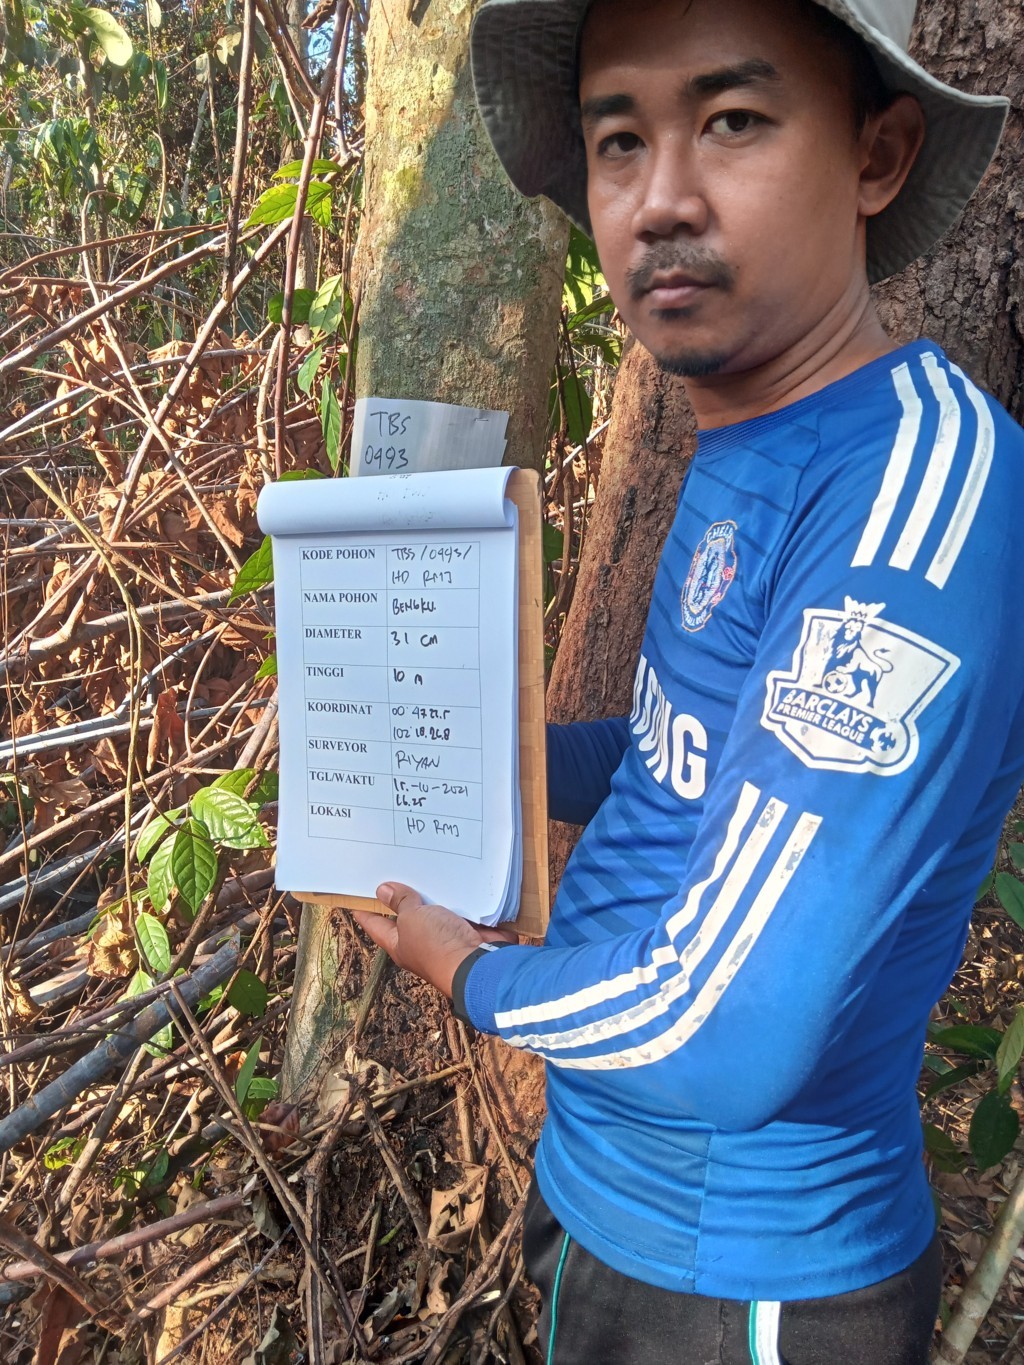 TBS
0493
KODE POHON TBS/0493/
HD RMJ
NAMA POHON BENGKU
DIAMETER 31 cm
TINGGI 10 m
KOORDINAT
SURVEYOR RIYAN
TGL/WAKTU 15-10-2021
LOKASI HD RMJ
BARCLAYS
PREMIER LEAGUE